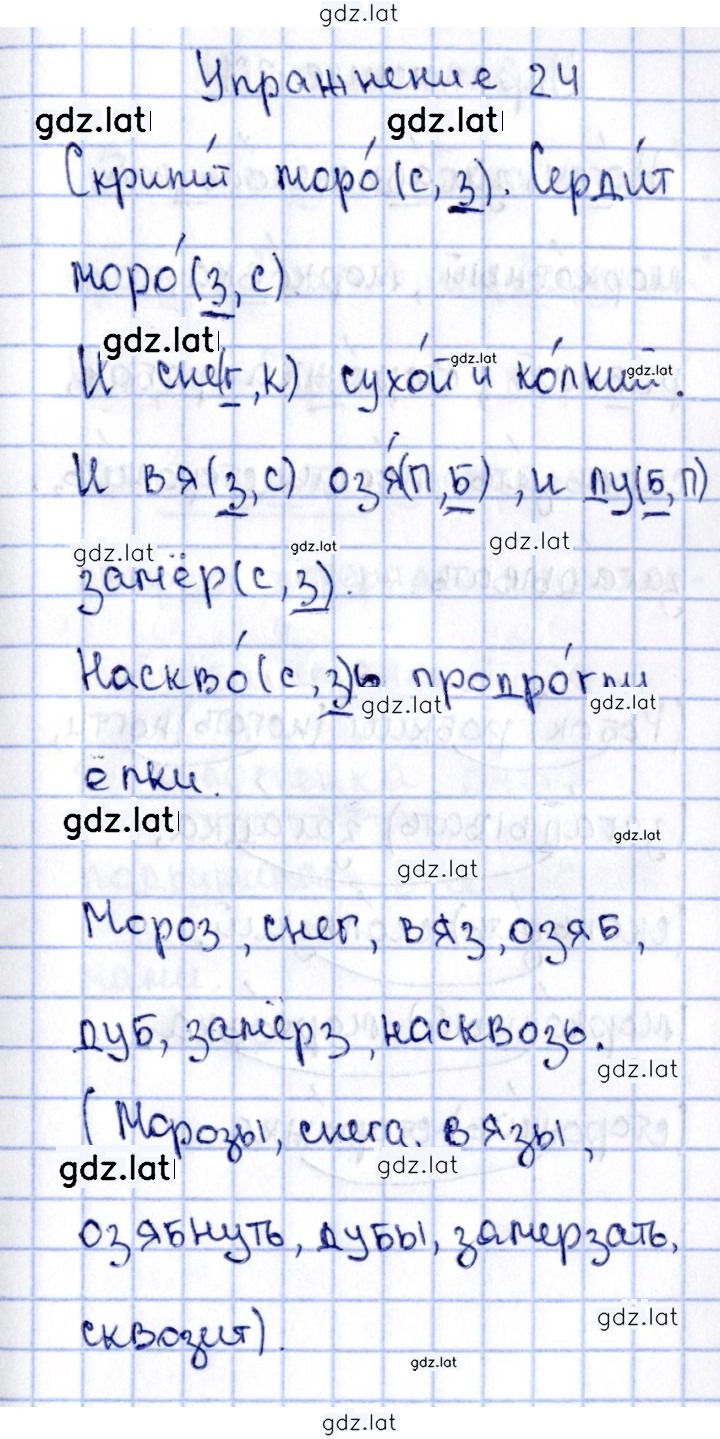 gdz.lat
Упражнение 24
gdz.lat gdz.lat
Скрипи́т моро́(с,з). Серди́т
моро́(з,с)
gdz.lat
И сне(г,к) сухо́й и ко́лкий.
gdz.lat gdz.lat
И вя(з,с) озя́(п,б), и ду(б,п)
gdz.lat gdz.lat gdz.lat
замёр(с,з).
Наскво́(с,з)ь продро́гли
gdz.lat gdz.lat
ёлки.
gdz.lat gdz.lat
gdz.lat
Мороз, снег, вяз, озяб,
дуб, замёрз, насквозь.
gdz.lat
(Морозы, снега. вязы,
gdz.lat gdz.lat
озябнуть, дубы, замерзать,
gdz.lat
сквозит).
gdz.lat
gdz.lat